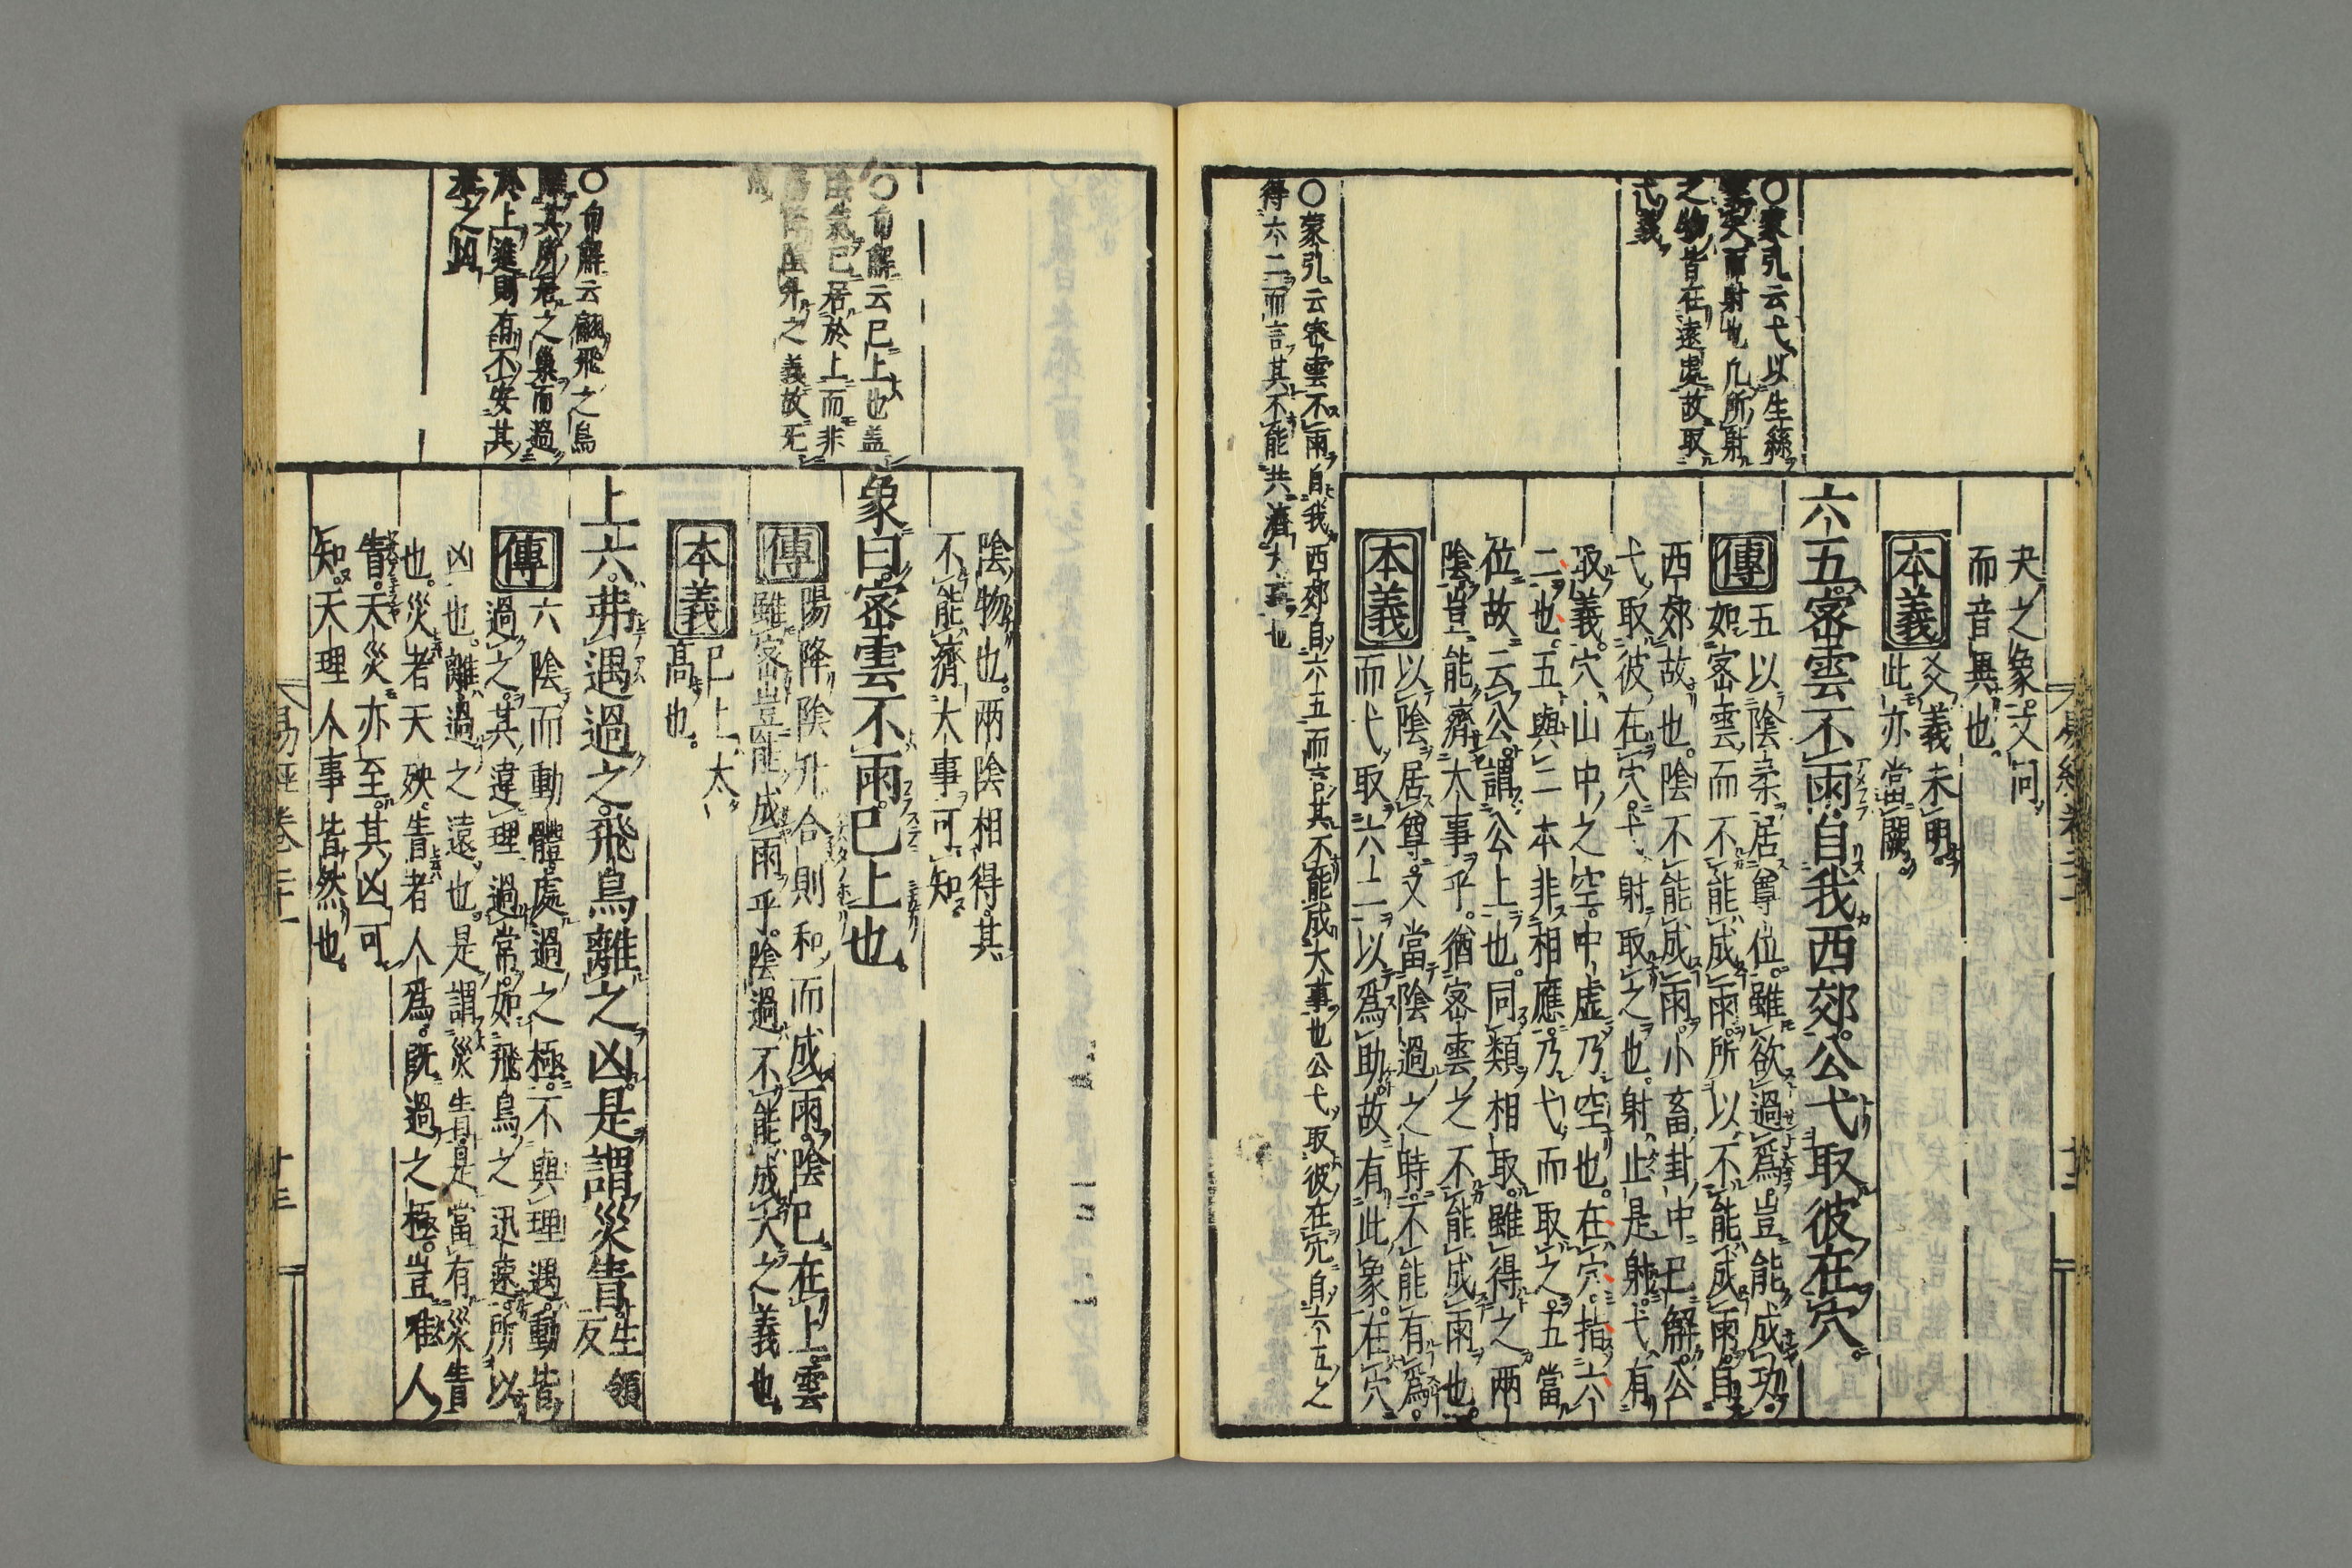 夬之象文同
而音異也
本義 爻義未明
此亦當闕
六五密雲不雨自我西郊公弋取彼在穴
傳 五以陰柔居尊位雖欲過為豈能成功
如密雲而不能成雨所以不能成雨自
西郊故也陰不能成雨小畜卦中已解公
弋取彼在穴弋射取之也射止是射弋有
取義穴山中之空中虛乃空也在穴指六
二也五與二本非相應乃弋而取之五當
位故云公謂公上也同類相取雖得之兩
陰豈能濟大事乎猶密雲之不能成雨也
本義 以陰居尊又當陰過之時不能有為
而弋取六二以為助故有此象在穴
○蒙引云弋以生絲
矢而射也凡所射
之物皆在遠處故取
弋義
○蒙引云密雲不雨自我西郊自六五而言其不能成大事也公弋取彼在穴自六五之
得六二而言其不能共濟大事也
易經卷
陰物也兩陰相得其
不能濟大事可知
象曰密雲不雨已上也
傳 陽降陰升合則和而成雨陰已在上雲
雖密豈能成雨乎陰過不能成大之義也
本義 已上太
高也
上六弗遇過之飛鳥離之凶是謂災眚 生領反
傳 六陰而動體處過之極不與理遇動皆
過之其違理過常如飛鳥之迅速所以
凶也離過之遠也是謂災眚是當有災眚
也災者天殃眚者人為既過之極豈唯人
眚天災亦至其凶可
知天理人事皆然也
○有解云已上也蓋
陰氣已居於上而非
陽降陰升之義故无
成
○有解云翩飛之鳥
離其所居之巢而過
於上進則有不安其
巢之凶
易經卷